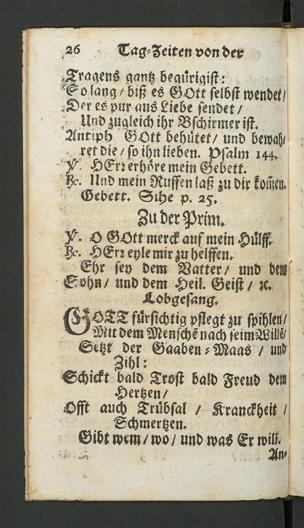 26 Tag-Zeiten von der
Tragens gantz begürigist:
So lang / biß es GOtt selbst wendet /
Der es pur aus Liebe sendet /
Und zugleich ihr Bschirmer ist.
Antiph GOtt behütet / und bewah-
ret die / so ihn lieben. Psalm 144.
℣. HErr erhöre mein Gebett.
℟. Und mein Ruffen laß zu dir kom̃en.
Gebett. Sihe p. 25.
Zu der Prim.
℣. O GOtt merck auf mein Hülff.
℟. HErr eyle mir zu helffen.
Ehr sey dem Vatter / und dem
Sohn / und dem Heil. Geist / ꝛc.
Lobgesang.
GOTT fürsichtig pflegt zu spihlen /
Mit dem Mensche nach seim Wille /
Setzt der Gaaben-Maas / und
Zihl:
Schickt bald Trost bald Freud dem
Hertzen /
Offt auch Trübsal / Kranckheit /
Schmertzen.
Gibt wem / wo / und was Er will.
An-